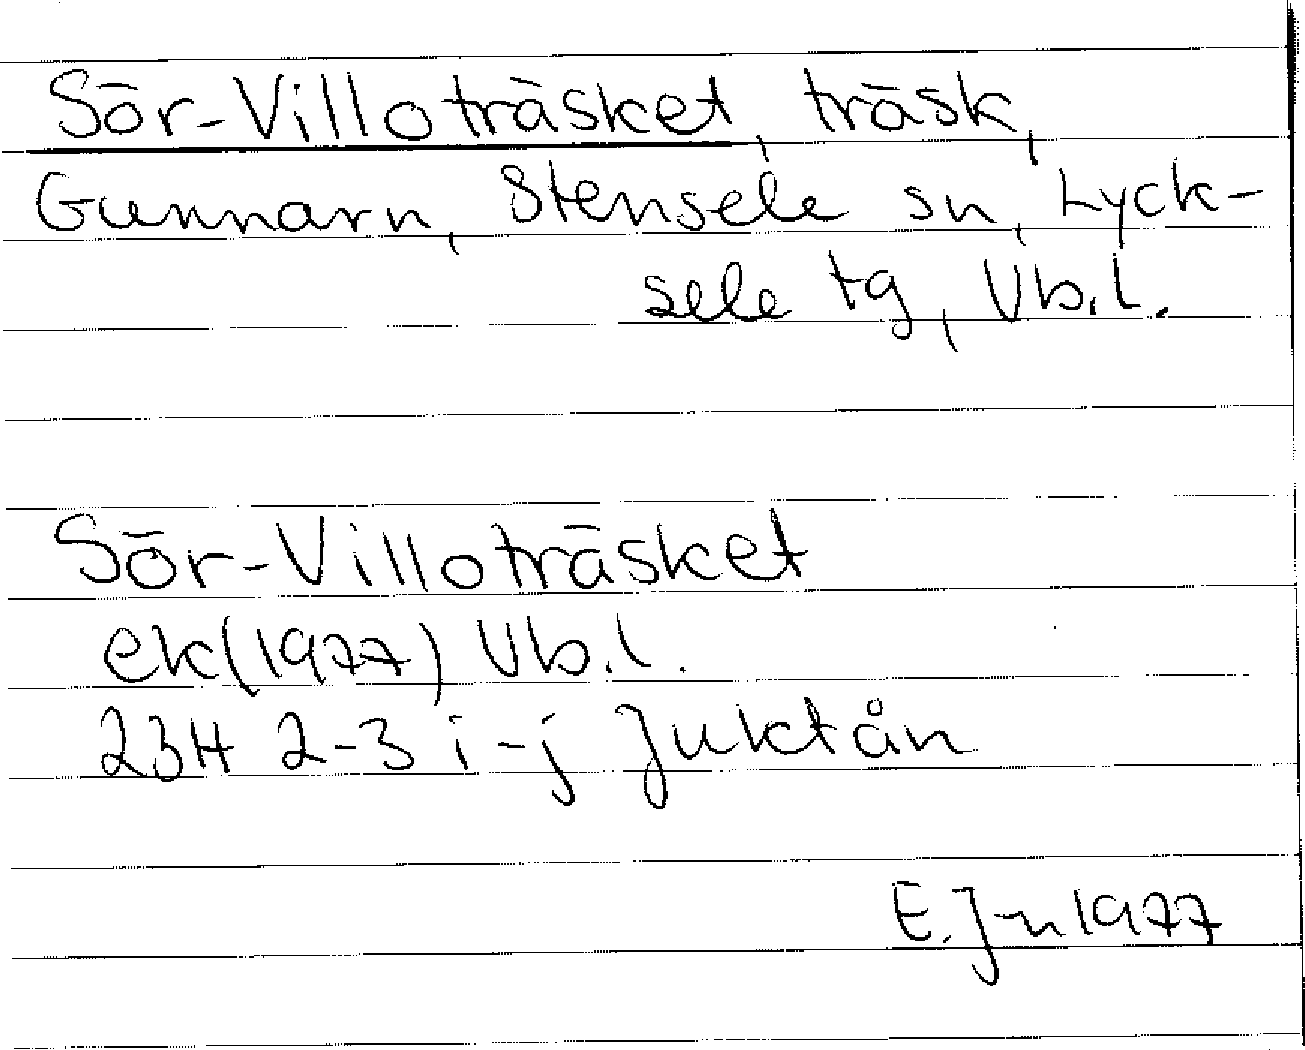 Sör-Villoträsket, träsk,
Gunnarn, Stensele sn, Lyck-
sele tg, Vb.l.
Sör-Villoträsket
ek(1977) Vb.l.
23H 2-3 i-j Juktån
E.J-n 1977